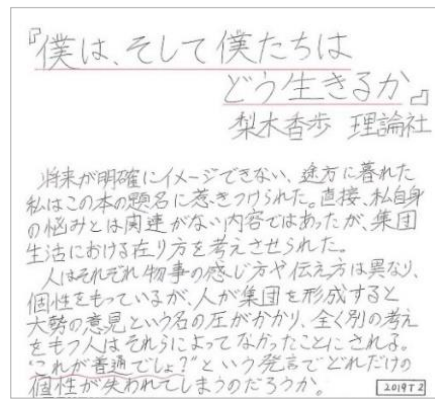 『僕は、そして僕たちは
どう生きるか』
梨木香歩 理論社
将来が明確にイメージできない、途方に暮れた
私はこの本の題名に惹きつけられた。直接、私自身
の悩みとは関連がない内容ではあったが、集団
生活における在り方を考えさせられた。
人はそれぞれ物事の感じ方や伝え方は異なり、
個性をもっているが、人が集団を形成すると
大勢の意見という名の圧がかかり、全く別の考え
をもつ人はそれらによってなかったことにされる。
"これが普通でしょ?"という発言でどれだけの
個性が失われてしまうのだろうか。
2019T2